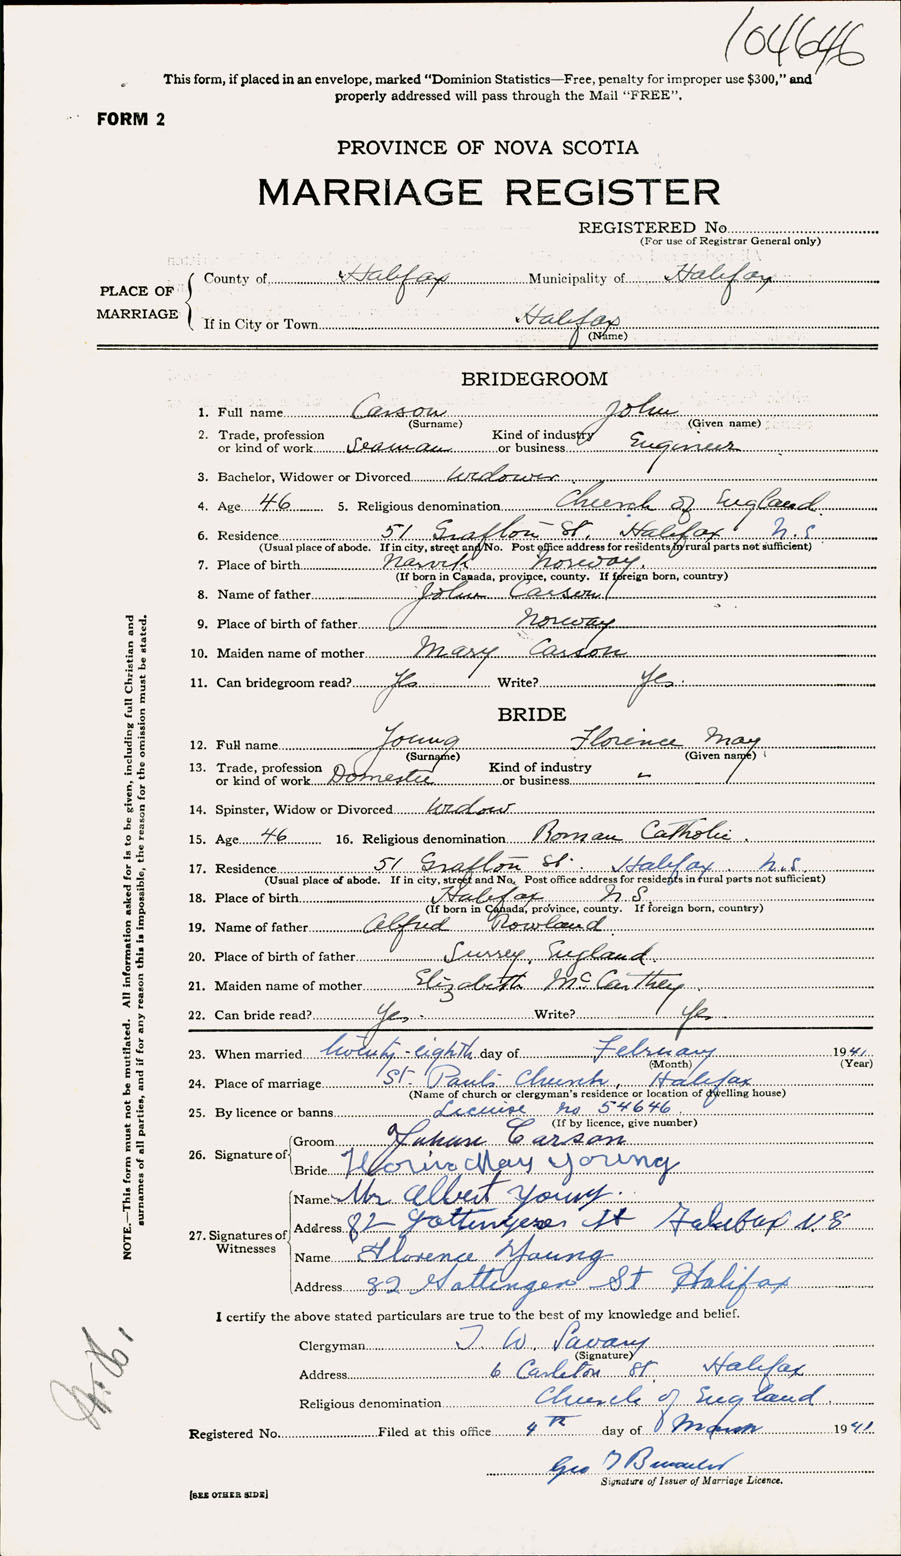 104646
This form, if placed in an envelope, marked "Dominion Statistics—Free, penalty for improper use $300," and
properly addressed will pass through the Mail "FREE".
FORM 2
PROVINCE OF NOVA SCOTIA
MARRIAGE REGISTER
REGISTERED No.
(For use of Registrar General only)
PLACE OF MARRIAGE
County of Halifax Municipality of Halifax
If in City or Town Halifax
(Name)
BRIDEGROOM
1. Full name Carson John
(Surname) (Given name)
2. Trade, profession or kind of work Seaman Kind of industry or business Engineer
3. Bachelor, Widower or Divorced Widower
4. Age 46 5. Religious denomination Church of England
6. Residence 51 Grafton St. Halifax N.S
(Usual place of abode. If in city, street and No. Post office address for residents in rural parts not sufficient)
7. Place of birth Narvik Norway.
(If born in Canada, province, county. If foreign born, country)
8. Name of father John Carson
9. Place of birth of father Norway
10. Maiden name of mother Mary Carson
11. Can bridegroom read? Yes Write? Yes.
BRIDE
12. Full name Young Florence May
(Surname) (Given name)
13. Trade, profession or kind of work Domestic Kind of industry or business "
14. Spinster, Widow or Divorced Widow
15. Age 46 16. Religious denomination Roman Catholic.
17. Residence 51 Grafton St. Halifax. N.S.
(Usual place of abode. If in city, street and No. Post office address for residents in rural parts not sufficient)
18. Place of birth Halifax N.S.
(If born in Canada, province, county. If foreign born, country)
19. Name of father Alfred Rowland
20. Place of birth of father Surrey, England.
21. Maiden name of mother Elizabeth McCarthey.
22. Can bride read? Yes. Write? Yes.
23. When married twenty-eighth day of February 1941
(Month) (Year)
24. Place of marriage St. Paul's Church, Halifax
(Name of church or clergyman's residence or location of dwelling house)
25. By licence or banns License no 54646
(If by licence, give number)
26. Signature of
Groom Carson
Bride May Young
27. Signatures of Witnesses
Name Mr Albert Young.
Address 82 Gottingen St Halifax N.S
Name Florence Young
Address 82 Gottingen St Halifax
I certify the above stated particulars are true to the best of my knowledge and belief.
Clergyman T. W. Savary
(Signature)
Address 6 Carleton St. Halifax
Religious denomination Church of England.
Registered No. Filed at this office 4th day of March 1941
Geo
Signature of Issuer of Marriage Licence.
[SEE OTHER SIDE]
NOTE.—This form must not be mutilated. All information asked for is to be given, including full Christian and
surnames of all parties, and if for any reason this is impossible, the reason for the omission must be stated.